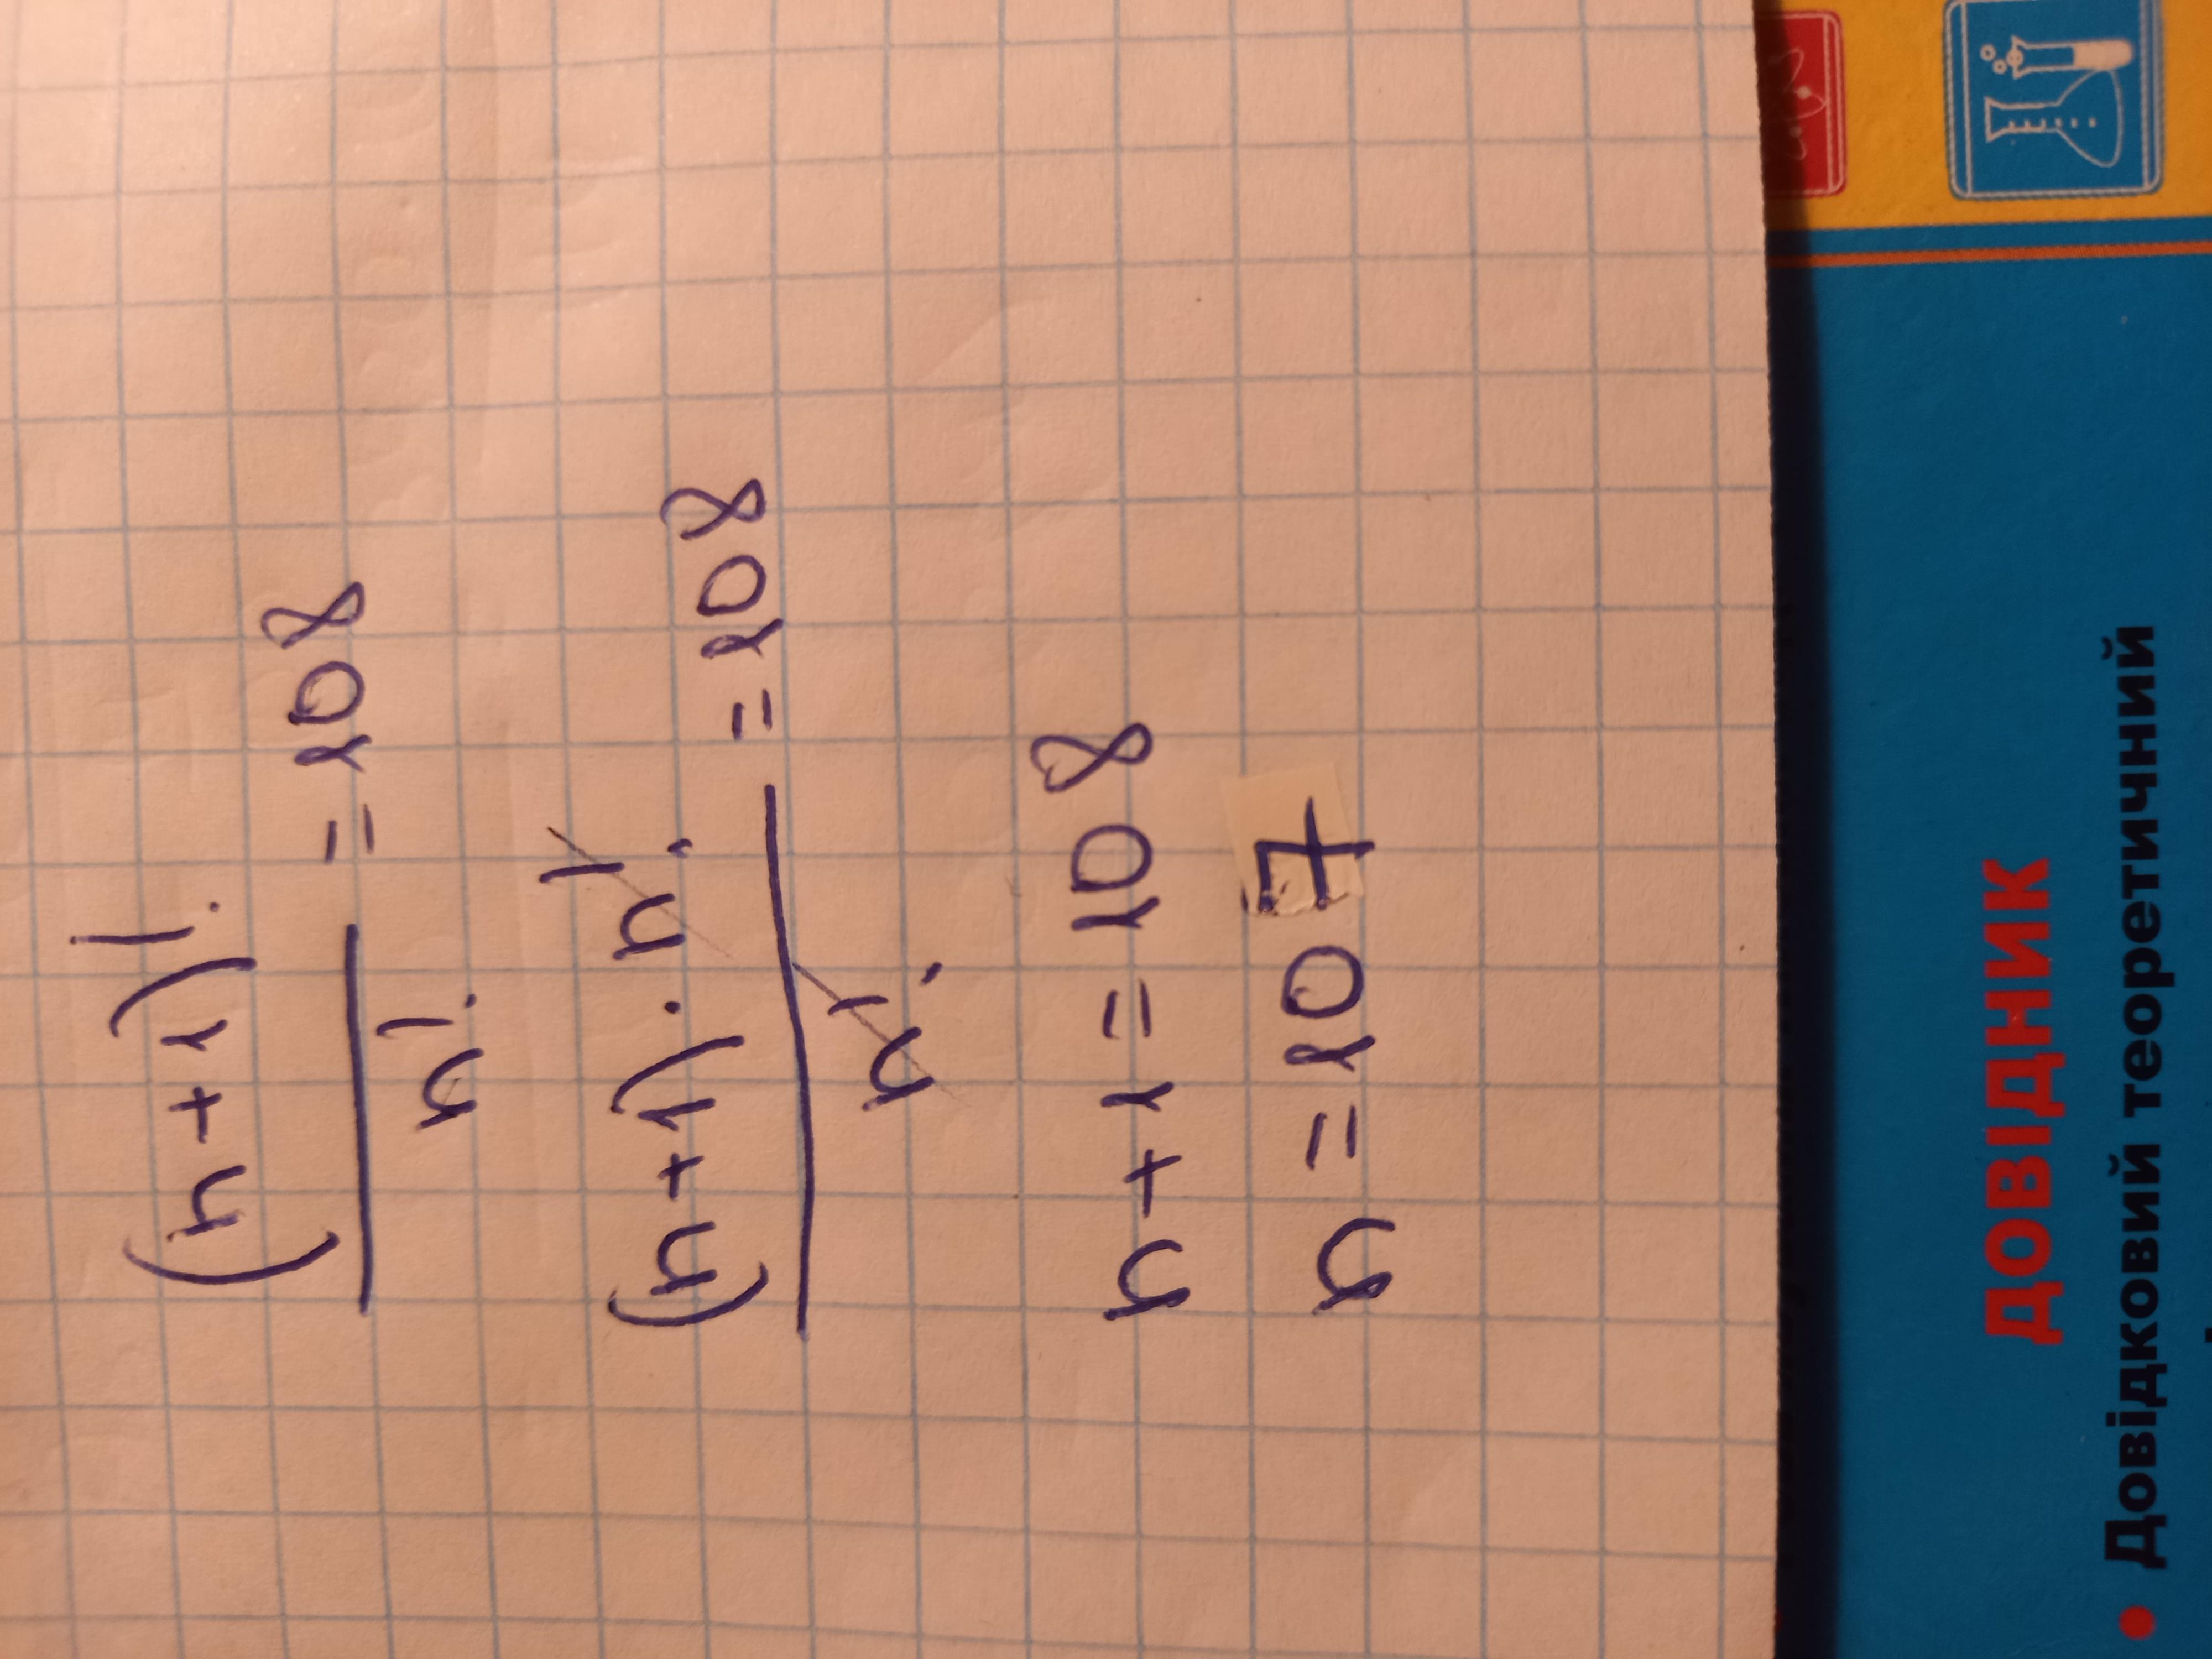 (n+1)! / n! = 108
(n+1)·n! / n! = 108
n+1=108
n=107
ДОВІДНИК
• Довідковий теоретичний